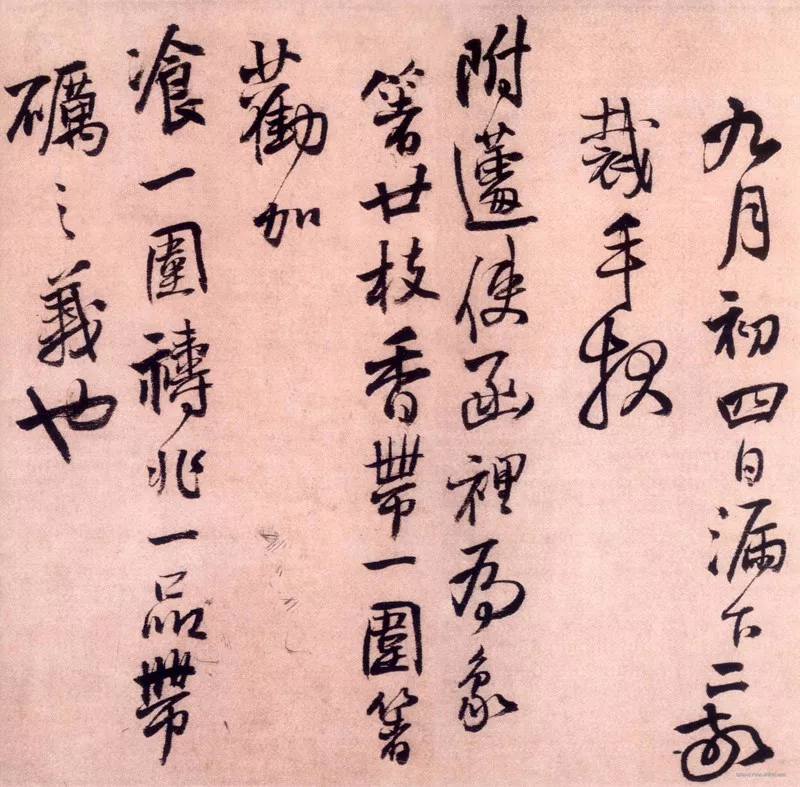 九月初四日漏下二刻
裁手状
附邁使函裡為象
箸廿枝香帶一圍箸
勸加
飡一圍禱兆一品帶
礪之義也